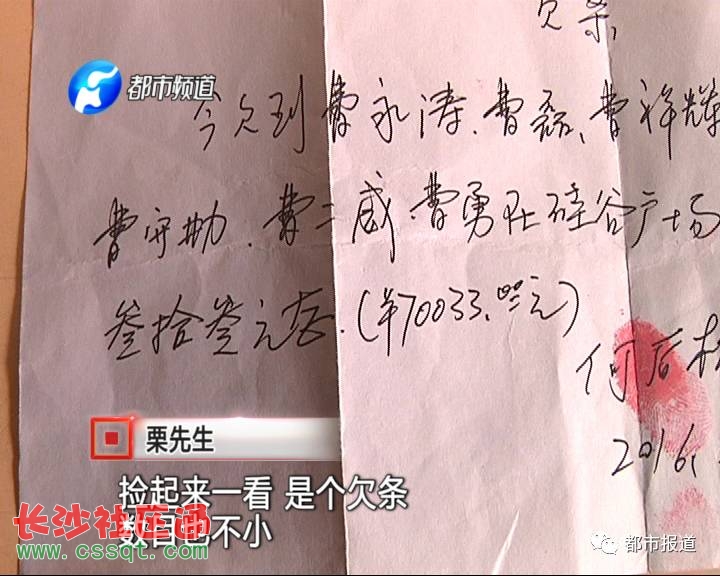 欠条
都市频道
今欠到费永涛、费磊、费祥辉
费守勋、费二威、费勇在硅谷广场
叁拾叁元整.(¥70033.00元)
何后
2016.
栗先生
捡起来一看 是个欠条
数目也不小
长沙社区通
www.cssqt.com
都市报道